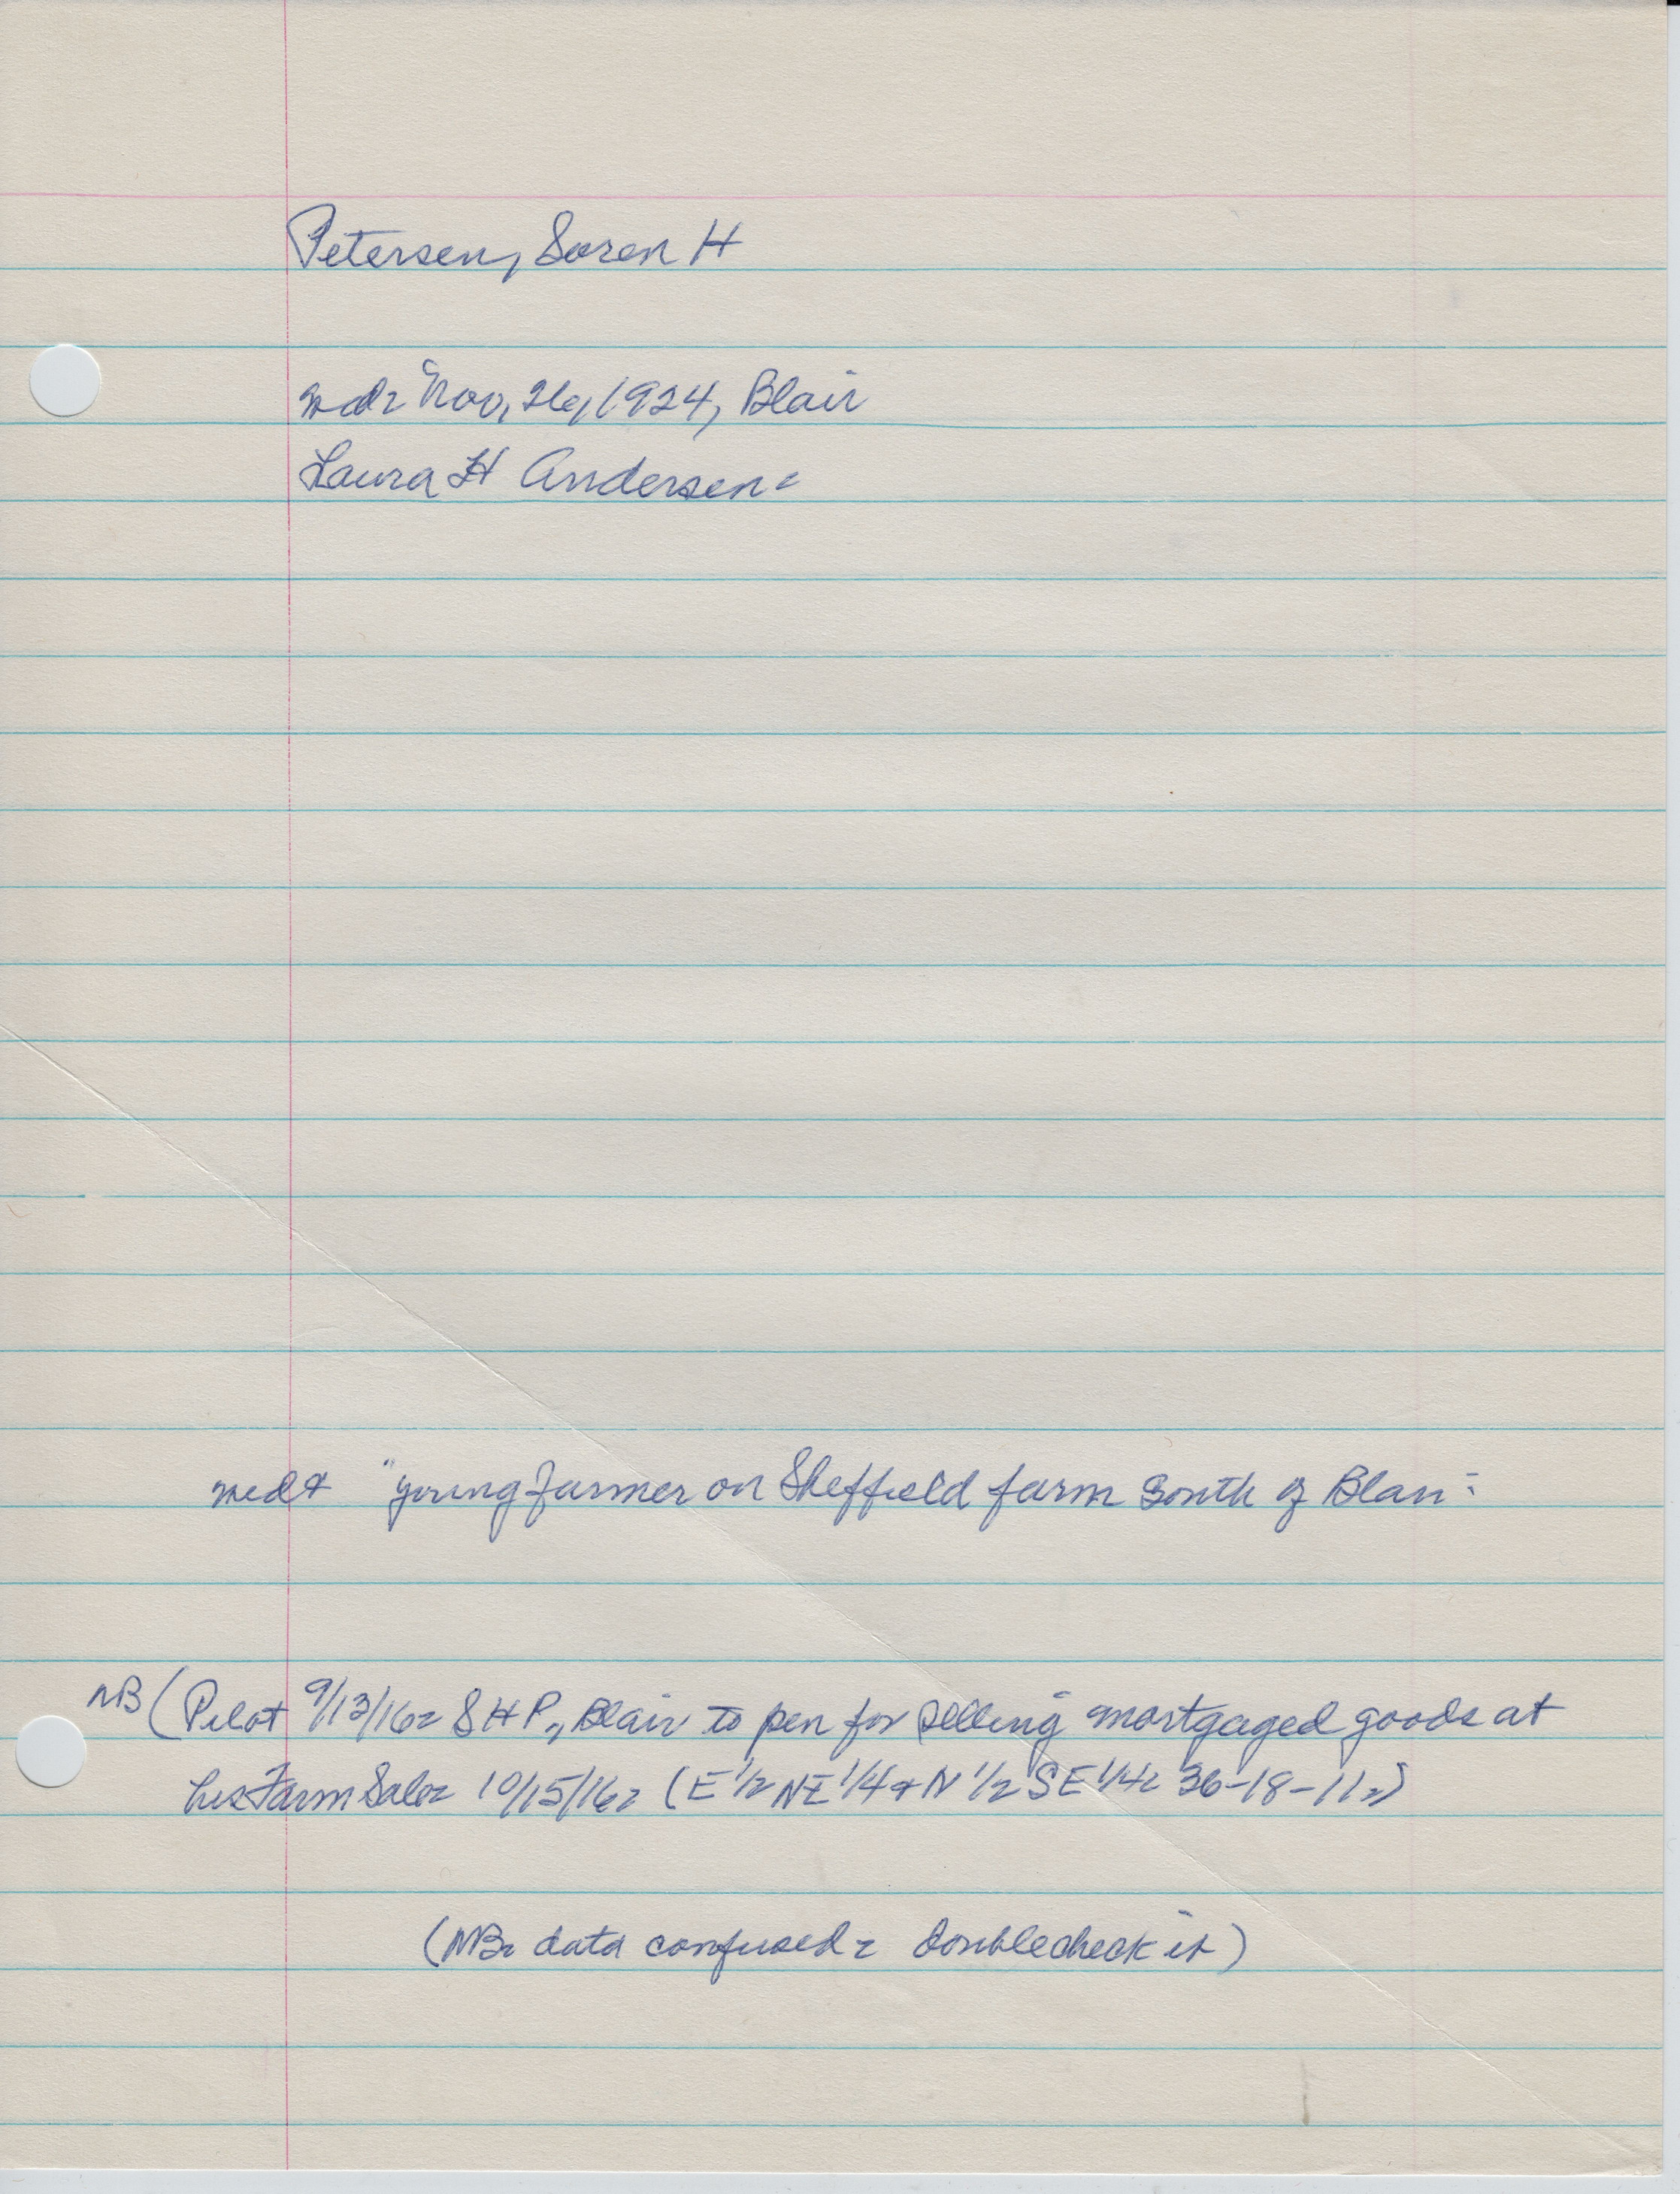 Petersen, Soren H
md= Nov, 26, 1924, Blair
Laura H Andersen=
"young farmer on Sheffield farm South of Blair"
NB (Pilot 9/13/16= S H P., Blair to pen for selling mortgaged goods at
his Farm Sale= 10/15/16= (E 1/2 NE 1/4 & N 1/2 SE 1/4= 36-18-11=)
(NB= data confused= doublecheck it)